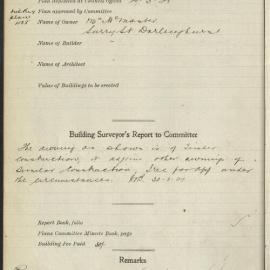 Plan deposited at Council Offices
Plan approved by Committee
Name of Owner Mr McMaster
Surry St Darlinghurst
Name of Builder
Name of Architect
Value of Buildings to be erected
Building Surveyor's Report to Committee
The awning as shown is of
construction, it adjoins other awnings of
similar construction, I see for app under
the circumstances.
Report Book, folio
Plans Committee Minute Book, page
Building Fee Paid
Remarks